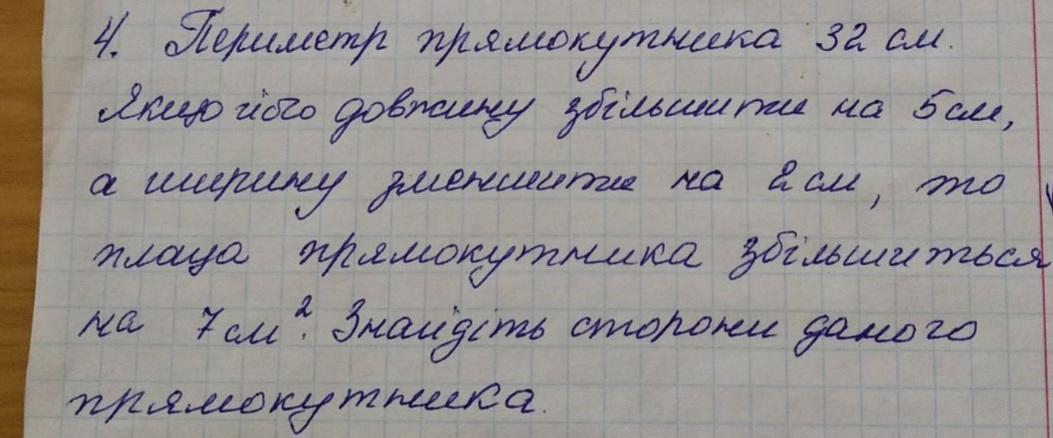 4. Периметр прямокутника 32 см.
Якщо його довжину збільшити на 5см,
а ширину зменшити на 2см, то
площа прямокутника збільшиться
на 7см². Знайдіть сторони даного
прямокутника.